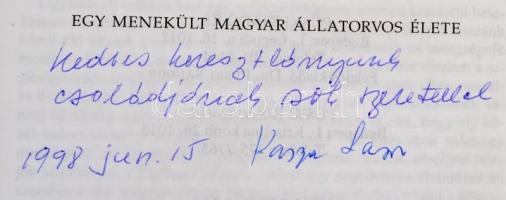 EGY MENEKÜLT MAGYAR ÁLLATORVOS ÉLETE
Kedves keresztlányunk
családjának sok szeretettel
1998 jun. 15